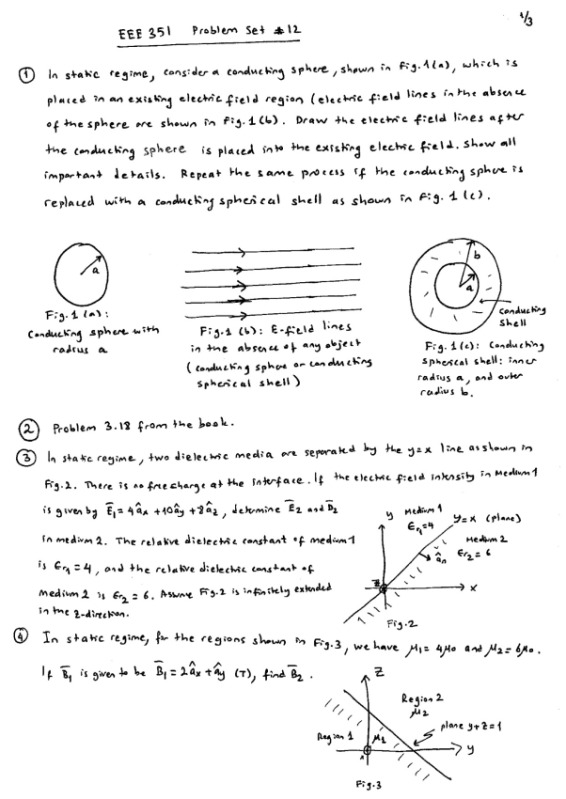 1/3
EEE 351 Problem Set #12
① In static regime, consider a conducting sphere, shown in Fig.1(a), which is
placed in an existing electric field region (electric field lines in the absence
of the sphere are shown in Fig.1(b). Draw the electric field lines after
the conducting sphere is placed into the existing electric field. Show all
important details. Repeat the same process if the conducting sphere is
replaced with a conducting spherical shell as shown in Fig. 1(c).
a
Fig.1(a):
Conducting sphere with
radius a
Fig.1(b): E-field lines
in the absence of any object
(conducting sphere or conducting
spherical shell)
b
a
conducting
shell
Fig.1(c): Conducting
spherical shell: inner
radius a, and outer
radius b.
② Problem 3.18 from the book.
③ In static regime, two dielectric media are separated by the y=x line as shown in
Fig.2. There is no free charge at the interface. If the electric field intensity in Medium 1
is given by E̅₁=4âx+10ây+8âz, determine E̅₂ and D̅₂
in medium 2. The relative dielectric constant of medium 1
is εr₁=4, and the relative dielectric constant of
medium 2 is εr₂=6. Assume Fig.2 is infinitely extended
in the z-direction.
y
Medium 1
εr₁=4
y=x (plane)
Medium 2
εr₂=6
ân
x
Fig.2
④ In static regime, for the regions shown in Fig.3, we have μ₁=4μ₀ and μ₂=6μ₀.
If B̅₁ is given to be B̅₁=2âx+ây (T), find B̅₂.
Z
Region 2
μ₂
plane y+z=1
Region 1
μ₁
y
x
Fig.3